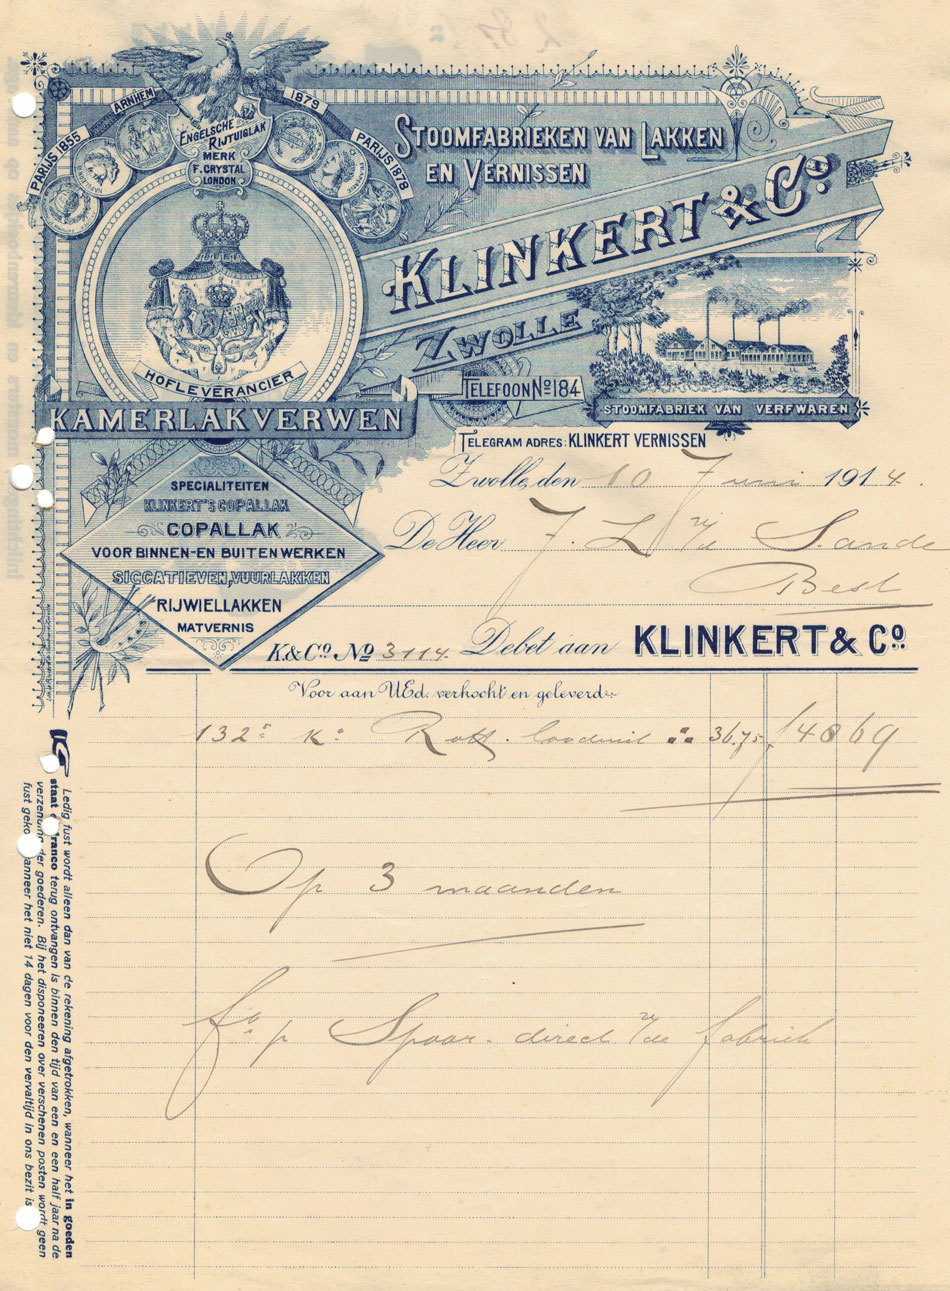 PARIJS 1855
ARNHEM
1879
PARIJS 1878
ENGELSCHE
RIJTUIGLAK
MERK
F. CRYSTAL
LONDON
STOOMFABRIEKEN VAN LAKKEN
EN VERNISSEN
KLINKERT & Co
ZWOLLE
HOFLEVERANCIER
KAMERLAKVERWEN
TELEFOON No 184
STOOMFABRIEK VAN VERFWAREN
TELEGRAM ADRES: KLINKERT VERNISSEN
Zwolle, den 10 Juni 1914.
SPECIALITEITEN
KLINKERT'S COPALLAK
COPALLAK
VOOR BINNEN- EN BUITENWERKEN
SICCATIEVEN, VUURLAKKEN
RIJWIELLAKKEN
MATVERNIS
De Heer J. L. v/d Sande
Best
K & Co No 3114. Debet aan KLINKERT & Co.
Voor aan UEd. verkocht en geleverd
132 Ko 36.75 f 48 69
Op 3 maanden
fo p Spoor direct v/de fabriek
Ledig fust wordt alleen dan van de rekening afgetrokken, wanneer het in goeden
staat franco terug ontvangen is binnen den tijd van een en een half jaar na de
verzending der goederen. Bij het disponeeren over verschenen posten wordt geen
fust wanneer het niet 14 dagen voor den vervaltijd in ons bezit is